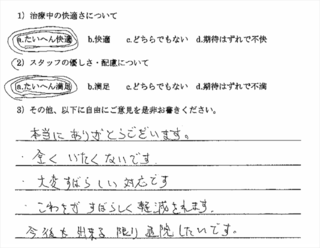 1) 治療中の快適さについて
a.たいへん快適 b.快適 c.どちらでもない d.期待はずれで不快
2) スタッフの優しさ・配慮について
a.たいへん満足 b.満足 c.どちらでもない d.期待はずれで不満
3) その他、以下に自由にご意見を是非お書きください。
本当にありがとうございます。
・全くいたくないです
・大変すばらしい対応です
・こわさがすばらしく軽減されます。
今後も出来る限り通院したいです。